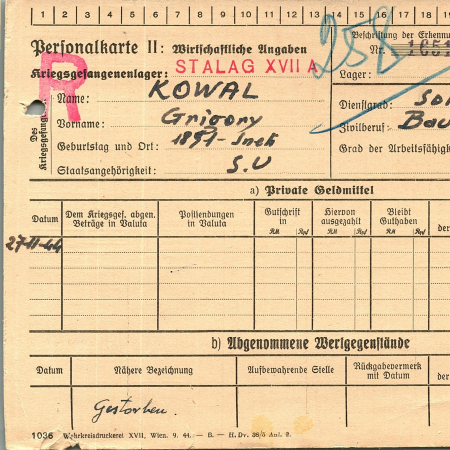 1 2 3 4 5 6 7 8 9 10 11 12 13 14 15 16 17 18
Beschriftung der Erkennu
Personalkarte II: Wirtschaftliche Angaben
258
Nr. 1651
Kriegsgefangenenlager: STALAG XVII A
Lager:
R
Des Kriegsgefang
Name: KOWAL
Dienstgrad: Sol
Vorname: Grigory
Zivilberuf: Bau
Geburtstag und Ort: 1897-
Grad der Arbeitsfähigk
Staatsangehörigkeit: S.U
a) Private Geldmittel
Datum Dem Kriegsgef. abgen. Beträge in Valuta Postsendungen in Valuta Gutschrift in RM Rpf Hiervon ausgezahlt RM Rpf Bleibt Guthaben RM Rpf der
27-11-44
b) Abgenommene Wertgegenstände
Datum Nähere Bezeichnung Aufbewahrende Stelle Rückgabevermerk mit Datum der
Gestorben.
1036 Wehrkreisdruckerei XVII, Wien. 9. 44. — B. — H. Dv. 38/5 Anl. 2.